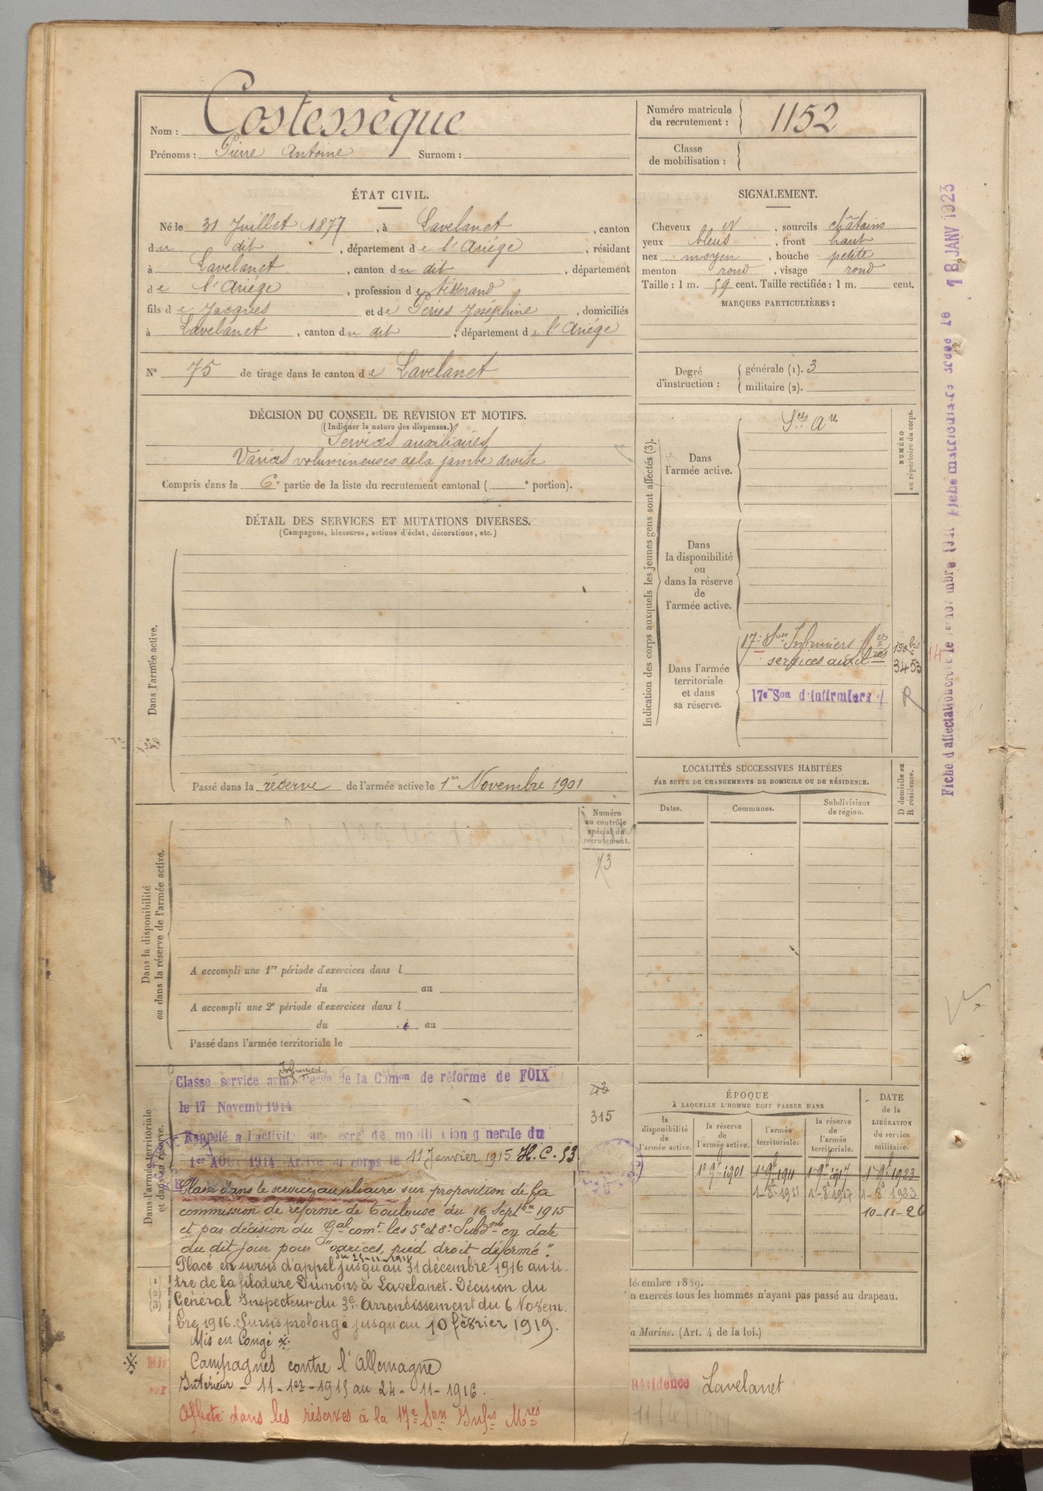 Nom : Costessèque
Prénoms : Pierre Antoine Surnom :
Numéro matricule du recrutement : 1152
Classe de mobilisation :
ÉTAT CIVIL.
Né le 31 Juillet 1877, à Lavelanet, canton
du dit, département de l'Ariège, résidant
à Lavelanet, canton du dit, département
de l'Ariège, profession de tisserand
fils de Jacques et de Péries Joséphine, domiciliés
à Lavelanet, canton du dit, département de l'Ariège
N° 75 de tirage dans le canton de Lavelanet
SIGNALEMENT.
Cheveux et, sourcils châtains
yeux bleus, front haut
nez moyen, bouche petite
menton rond, visage rond
Taille : 1 m. 59 cent. Taille rectifiée : 1 m. cent.
MARQUES PARTICULIÈRES :
Degré d'instruction : générale (1). 3
militaire (2).
DÉCISION DU CONSEIL DE REVISION ET MOTIFS.
(Indiquer la nature des dispenses.)
Services auxiliaires
Varices volumineuses de la jambe droite
Compris dans la 6e partie de la liste du recrutement cantonal ( e portion).
DÉTAIL DES SERVICES ET MUTATIONS DIVERSES.
(Campagnes, blessures, actions d'éclat, décorations, etc.)
Dans l'armée active.
Passé dans la réserve de l'armée active le 1er Novembre 1901
Indication des corps auxquels les jeunes gens sont affectés (3).
NUMÉRO au répertoire du corps.
Dans l'armée active.
Sces Are
Dans la disponibilité ou dans la réserve de l'armée active.
Dans l'armée territoriale et dans sa réserve.
17e Son Infirmiers Mres
services auxil
3453
17e Son d'infirmiers
R
LOCALITÉS SUCCESSIVES HABITÉES
PAR SUITE DE CHANGEMENTS DE DOMICILE OU DE RÉSIDENCE.
D domicile ou R résidence.
Dates. Communes. Subdivisions de région.
Numéro au contrôle spécial du recrutement.
73
Dans la disponibilité ou dans la réserve de l'armée active.
A accompli une 1re période d'exercices dans l
du au
A accompli une 2e période d'exercices dans l
du au
Passé dans l'armée territoriale le
Dans l'armée territoriale et dans sa réserve.
Classe service armé de la Comon de réforme de FOIX
le 17 Novemb 1914
315
Rappelé à l'activité générale du
1er AOUT 1914. Arrivé au corps le 11 Janvier 1915 H.C. 53
Classé dans le service auxiliaire sur proposition de la
commission de réforme de Toulouse du 16 Septbre 1915
et par décision du Gal comt les 5e et 8e Subdons en date
du dit jour pour "varices, pied droit déformé".
Placé en sursis d'appel jusqu'au 31 décembre 1916 au ti-
tre de la filature Dumons à Lavelanet. Décision du
Général Inspecteur du 3e arrondissement du 6 Novem
bre 1916. Sursis prolongé jusqu'au 10 février 1919.
Mis en Congé
Campagnes contre l'Allemagne
Intérieur - 11-1er-1915 au 24-11-1916.
Affecté dans les réserves à la 17e Son Infrs Mres
ÉPOQUE
À LAQUELLE L'HOMME DOIT PASSER DANS
DATE de la LIBÉRATION du service militaire.
la disponibilité de l'armée active.
la réserve de l'armée active.
l'armée territoriale.
la réserve de l'armée territoriale.
10-11-26
décembre 1889.
n exercés tous les hommes n'ayant pas passé au drapeau.
a Marine. (Art. 4 de la loi.)
Résidence Lavelanet
18 JANV 1923